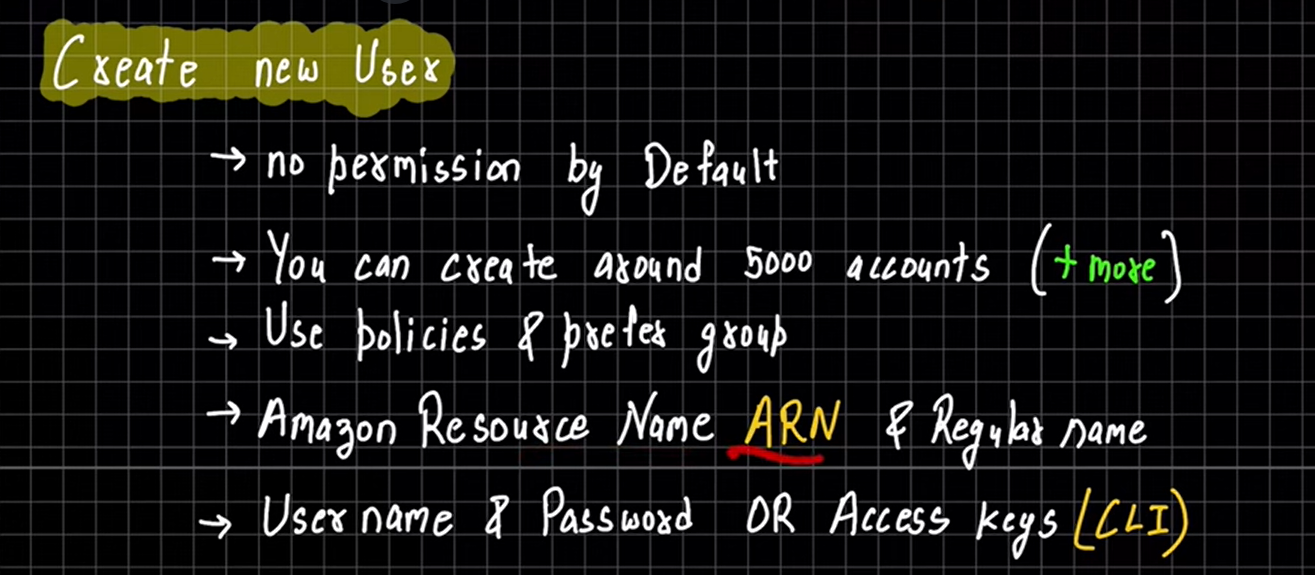 Create new User
→ no permission by Default
→ You can create around 5000 accounts (+ more)
→ Use policies & prefer group
→ Amazon Resource Name ARN & Regular name
→ Username & Password OR Access keys (CLI)